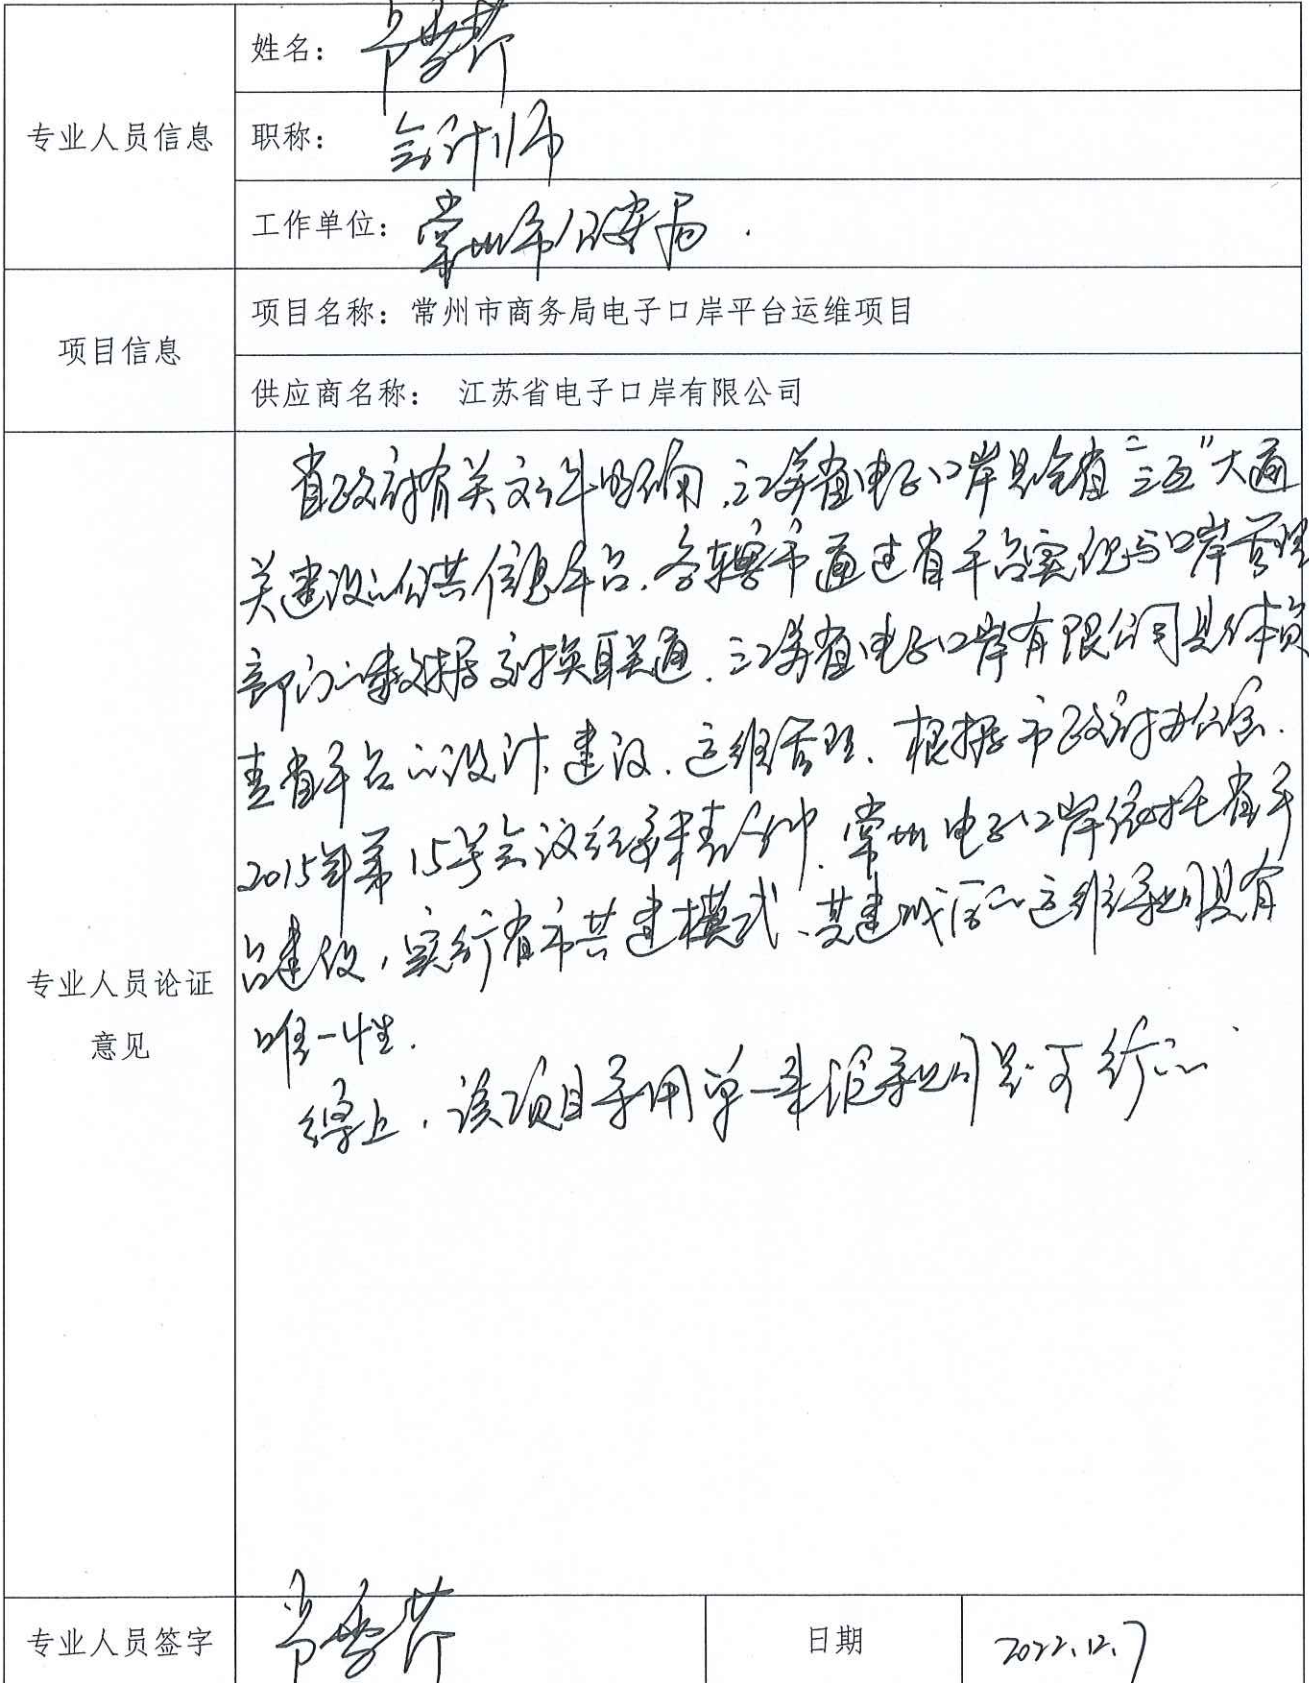 专业人员信息
姓名：
职称： 会计师
工作单位： 常州市公安局.
项目信息
项目名称：常州市商务局电子口岸平台运维项目
供应商名称： 江苏省电子口岸有限公司
专业人员论证
意见
省政府有关文件明确，江苏省电子口岸是全省"三互"大通
关建设的公共信息平台，各辖市通过省平台实现与口岸管理
部门的数据交换联通，江苏省电子口岸有限公司具体负
责省平台的设计、建设、运维管理。根据市政府办公室
2015年第15号会议纪要精神，常州电子口岸依托省平
台建设，实行省市共建模式、其建成后的运维采购具有
唯一性.
综上，该项目采用单一来源采购是可行的.
专业人员签字
日期
2022.12.7